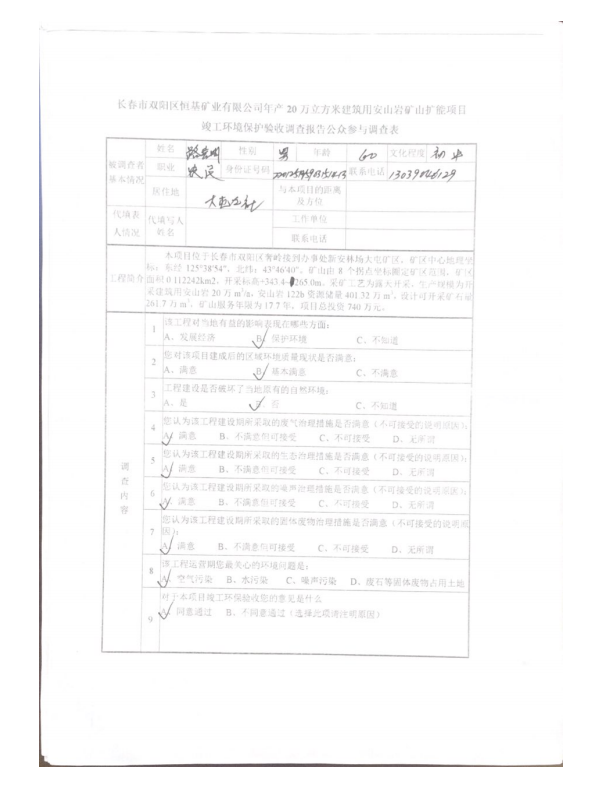 长春市双阳区恒基矿业有限公司年产 20 万立方米建筑用安山岩矿山扩能项目
竣工环境保护验收调查报告公众参与调查表
被调查者基本情况 姓名 性别 男 年龄 60 文化程度 初中
职业 农民 身份证号码 联系电话 13039046129
居住地 与本项目的距离及方位
代填表人情况 代填写人姓名 工作单位
联系电话
工程简介 本项目位于长春市双阳区奢岭接到办事处新安林场大屯矿区，矿区中心地理坐
标：东经 125°38′54″，北纬：43°46′40″，矿山由 8 个拐点坐标圈定矿区范围，矿区
面积 0.112242km2，开采标高+343.4 265.0m。采矿工艺为露天开采，生产规模为开
采建筑用安山岩 20 万 m³/a，安山岩 122b 资源储量 401.32 万 m³，设计可开采矿石量
261.7 万 m³，矿山服务年限为 17.7 年，项目总投资 740 万元。
调查内容
1 该工程对当地有益的影响表现在哪些方面：
A、发展经济 B、保护环境 C、不知道
2 您对该项目建成后的区域环境质量现状是否满意：
A、满意 B、基本满意 C、不满意
3 工程建设是否破坏了当地原有的自然环境：
A、是 B、否 C、不知道
4 您认为该工程建设期所采取的废气治理措施是否满意（不可接受的说明原因）：
A、满意 B、不满意但可接受 C、不可接受 D、无所谓
5 您认为该工程建设期所采取的生态治理措施是否满意（不可接受的说明原因）：
A、满意 B、不满意但可接受 C、不可接受 D、无所谓
6 您认为该工程建设期所采取的噪声治理措施是否满意（不可接受的说明原因）：
A、满意 B、不满意但可接受 C、不可接受 D、无所谓
7 您认为该工程建设期所采取的固体废物治理措施是否满意（不可接受的说明原
因）：
A、满意 B、不满意但可接受 C、不可接受 D、无所谓
8 该工程运营期您最关心的环境问题是：
A、空气污染 B、水污染 C、噪声污染 D、废石等固体废物占用土地
9 对于本项目竣工环保验收您的意见是什么
A、同意通过 B、不同意通过（选择此项请注明原因）